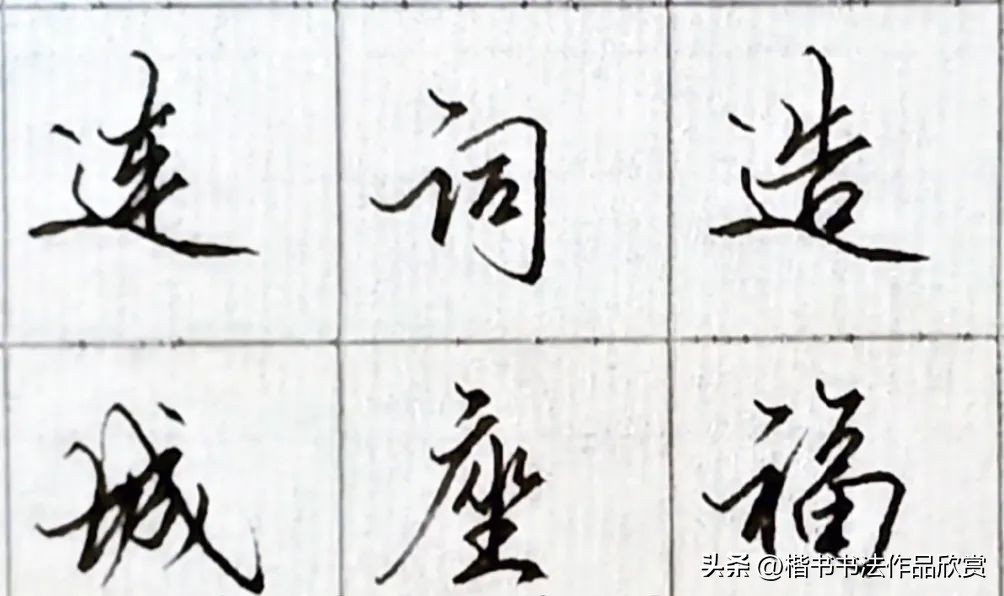 连词造
城座福
头条 @楷书书法作品欣赏